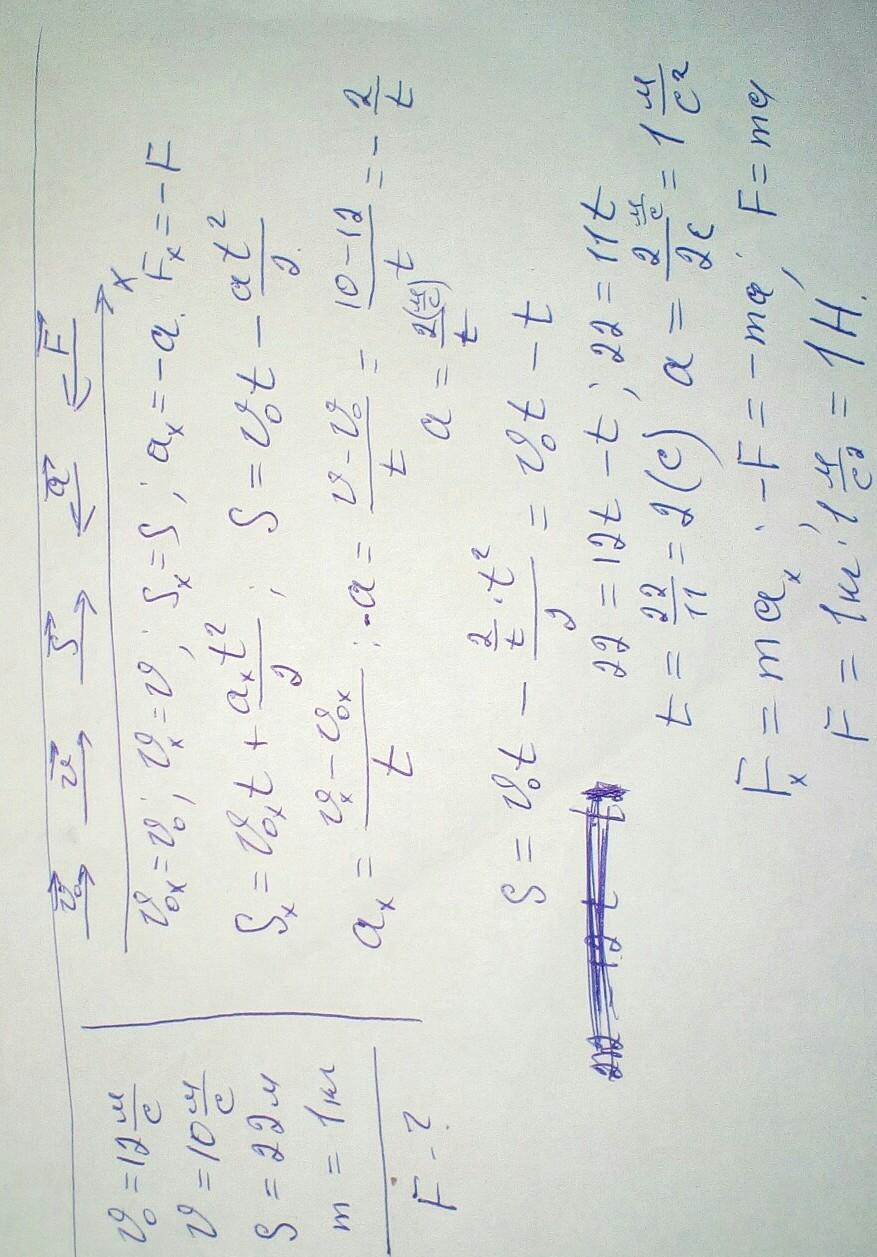 v₀ = 12 м/с
v = 10 м/с
S = 22 м
m = 1 кг
F - ?
v⃗₀ v⃗ S⃗ a⃗ F⃗
x
v₀ₓ = v₀; vₓ = v; Sₓ = S; aₓ = -a. Fₓ = -F
Sₓ = v₀ₓt + aₓt²/2; S = v₀t - at²/2
aₓ = (vₓ - v₀ₓ)/t; -a = (v - v₀)/t = (10 - 12)/t = -2/t
a = 2(м/с)/t
S = v₀t - (2/t · t²)/2 = v₀t - t
22 = 12t - t; 22 = 11t
t = 22/11 = 2(с) a = 2 м/с / 2с = 1 м/с²
Fₓ = maₓ; -F = -ma; F = ma
F = 1кг · 1 м/с² = 1Н.